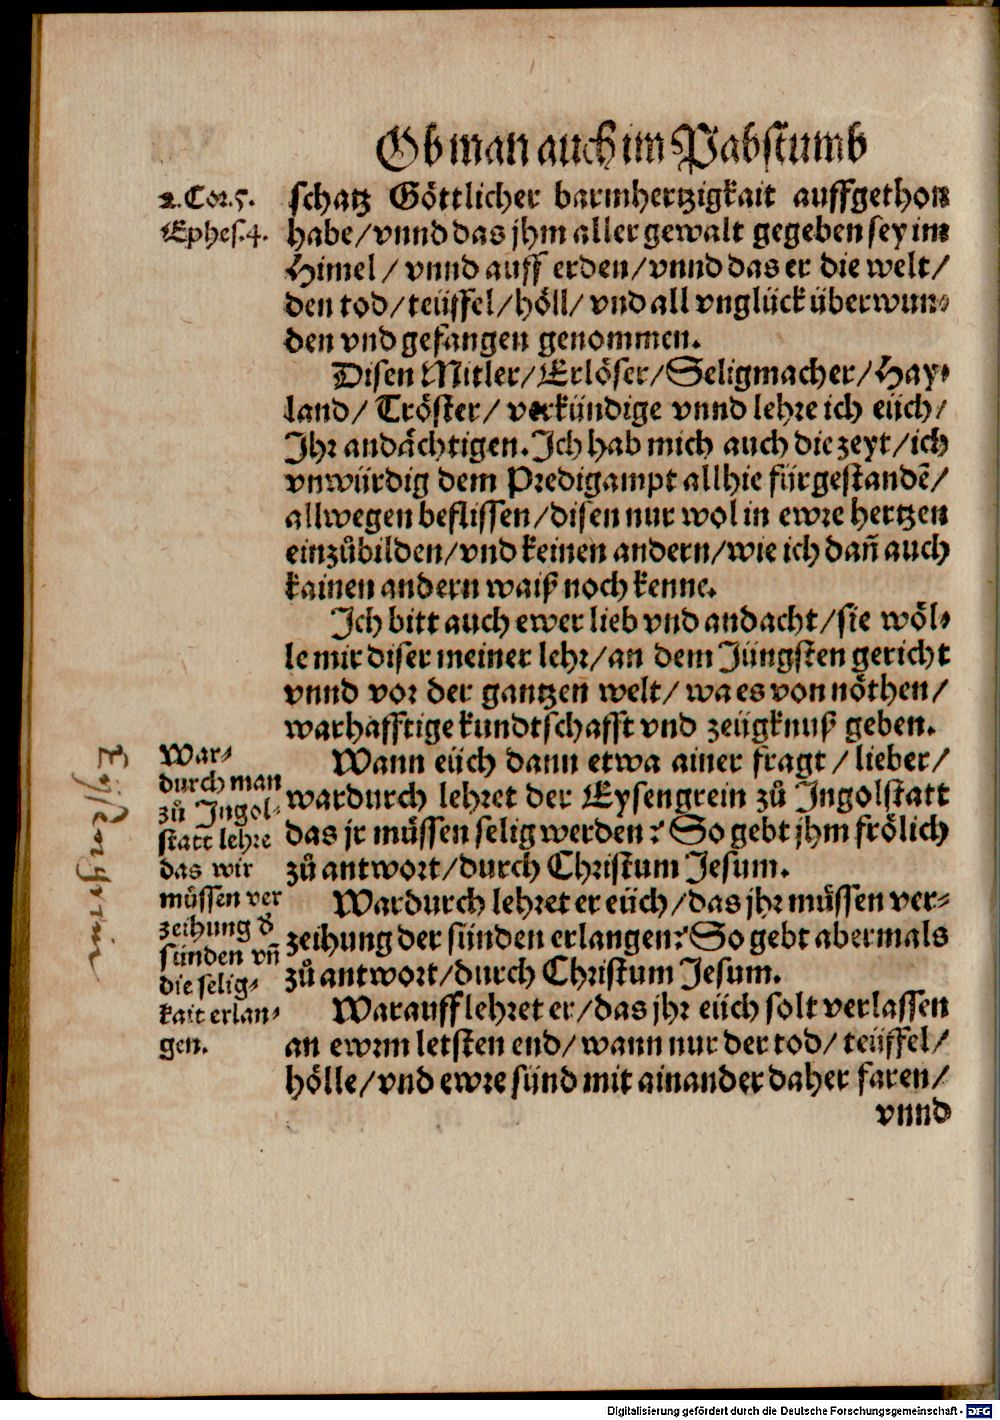 Ob man auch im Pabstumb
2. Cor. 5.
Ephes. 4.
schatz Göttlicher barmhertzigkait auffgethon
habe/ vnnd das jhm aller gewalt gegeben sey im
Himel/ vnnd auff erden/ vnnd das er die welt/
den tod/ teüffel/ höll/ vnd all vnglück überwun-
den vnd gefangen genommen.
Disen Mitler/ Erlöser/ Seligmacher/ Hay-
land/ Tröster/ verkündige vnnd lehre ich eüch/
Ihr andächtigen. Ich hab mich auch die zeyt/ ich
vnwürdig dem Predigampt allhie fürgestandē/
allwegen beflissen/ disen nur wol in ewre hertzen
einzůbilden/ vnd keinen andern/ wie ich dañ auch
kainen andern waiß noch kenne.
Ich bitt auch ewer lieb vnd andacht/ sie wöl-
le mir diser meiner lehr/ an dem Jüngsten gericht
vnnd vor der gantzen welt/ wa es von nöthen/
warhafftige kundtschafft vnd zeügknuß geben.
Wann eüch dann etwa ainer fragt/ lieber/
wardurch lehret der Eysengrein zů Ingolstatt
das jr müssen selig werden? So gebt jhm frölich
zů antwort/ durch Christum Jesum.
Wardurch lehret er eüch/ das jhr müssen ver-
zeihung der sünden erlangen? So gebt abermals
zů antwort/ durch Christum Jesum.
Warauff lehret er/ das jhr eüch solt verlassen
an ewrm letsten end/ wann nur der tod/ teüffel/
hölle/ vnd ewre sünd mit ainander daher faren/
vnnd
War-
durch man
zů Ingol-
statt lehre
das wir
müssen ver
zeihung d̕
sünden vñ
die selig-
kait erlan-
gen.
Eysengrein
Digitalisierung gefördert durch die Deutsche Forschungsgemeinschaft - DFG